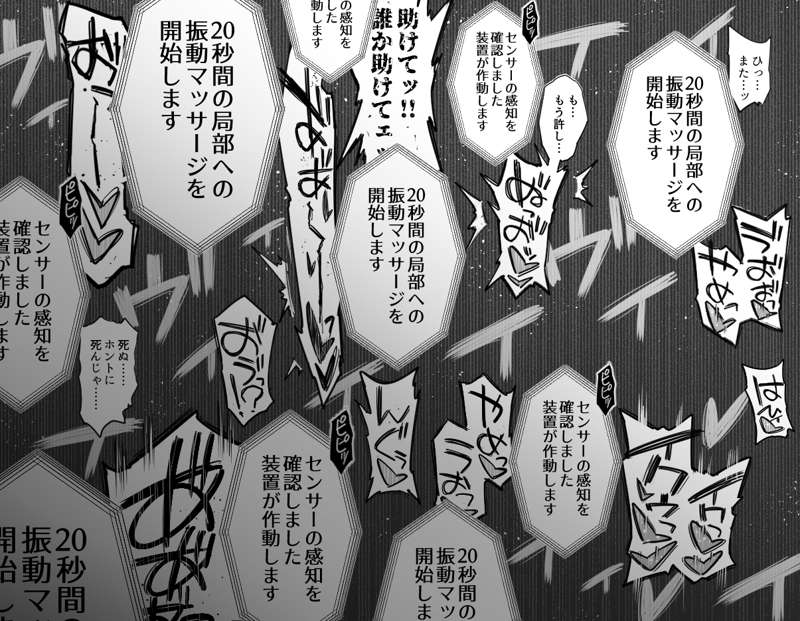 ひっ…
また…ッ
20秒間の局部への
振動マッサージを
開始します
ピピッ
センサーの感知を
確認しました
装置が作動します
も…
もう許し…
助けてッ!!
誰か助けてェ
センサーの感知を
確認しました
装置が作動します
20秒間の局部への
振動マッサージを
開始します
お゛ーーー
20秒間の局部への
振動マッサージを
開始します
ピピッ
センサーの感知を
確認しました
装置が作動します
死ぬ……
ホントに
死んじゃ……
お゛う!?
やめっ
ピピッ
センサーの感知を
確認しました
装置が作動します
イクッ
イクウッ
やめっ
んぐっ
ピピッ
センサーの感知を
確認しました
装置が作動します
20秒間の
振動マッ
開始しま
20秒間の
振動マ
開始し